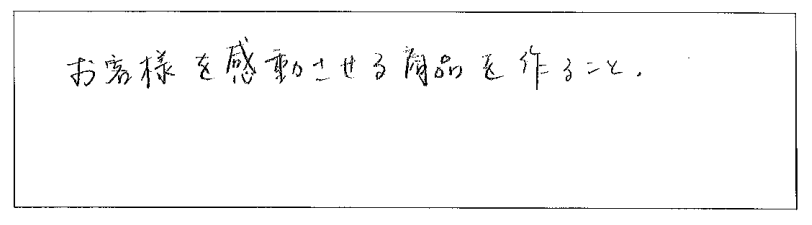 お客様を感動させる商品を作ること.